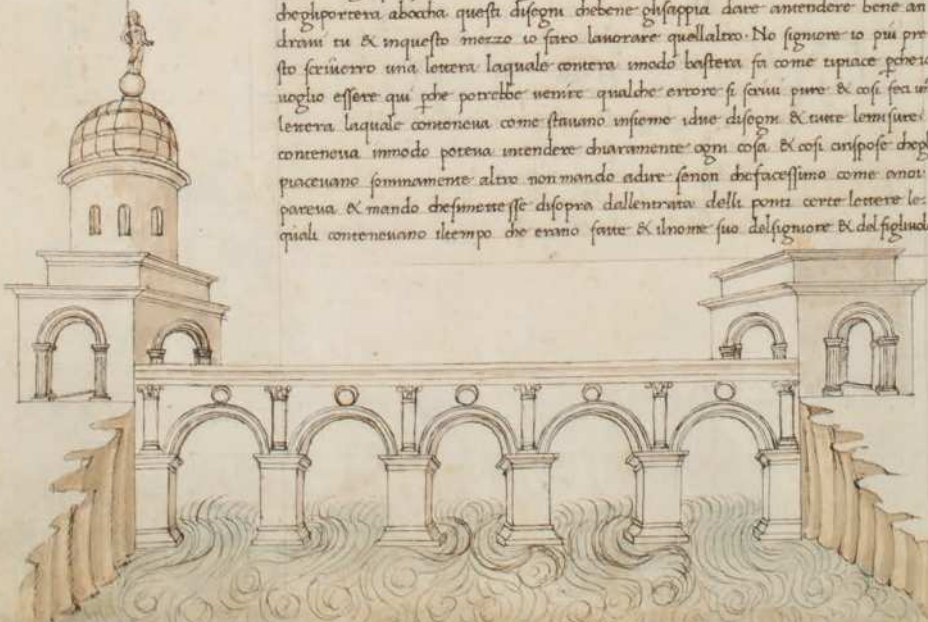 chegliportera abocha questi disegni chebene glisappia dare antendere bene an
drani tu & inquesto mezzo io faro lavorare quellaltro. No signiore io piu pre
sto scriverro una lettera laquale contera imodo bastera fa come tipiace pche
voglio essere qui pche potrebbe venire qualche errore si scrivi pure & cosi feci
lettera laquale conteneva come stavano insieme idue disegni & tutte lemisure
conteneva inmodo poteva intendere chiaramente ogni cosa & cosi cirispose
piacevano sommamente altro non mando adire senon chefacessimo come anoi
pareva & mando chesimettesse disopra dallentrata delli ponti certe lettere le
quali contenevano iltempo che erano fatte & ilnome suo delsigniore & del